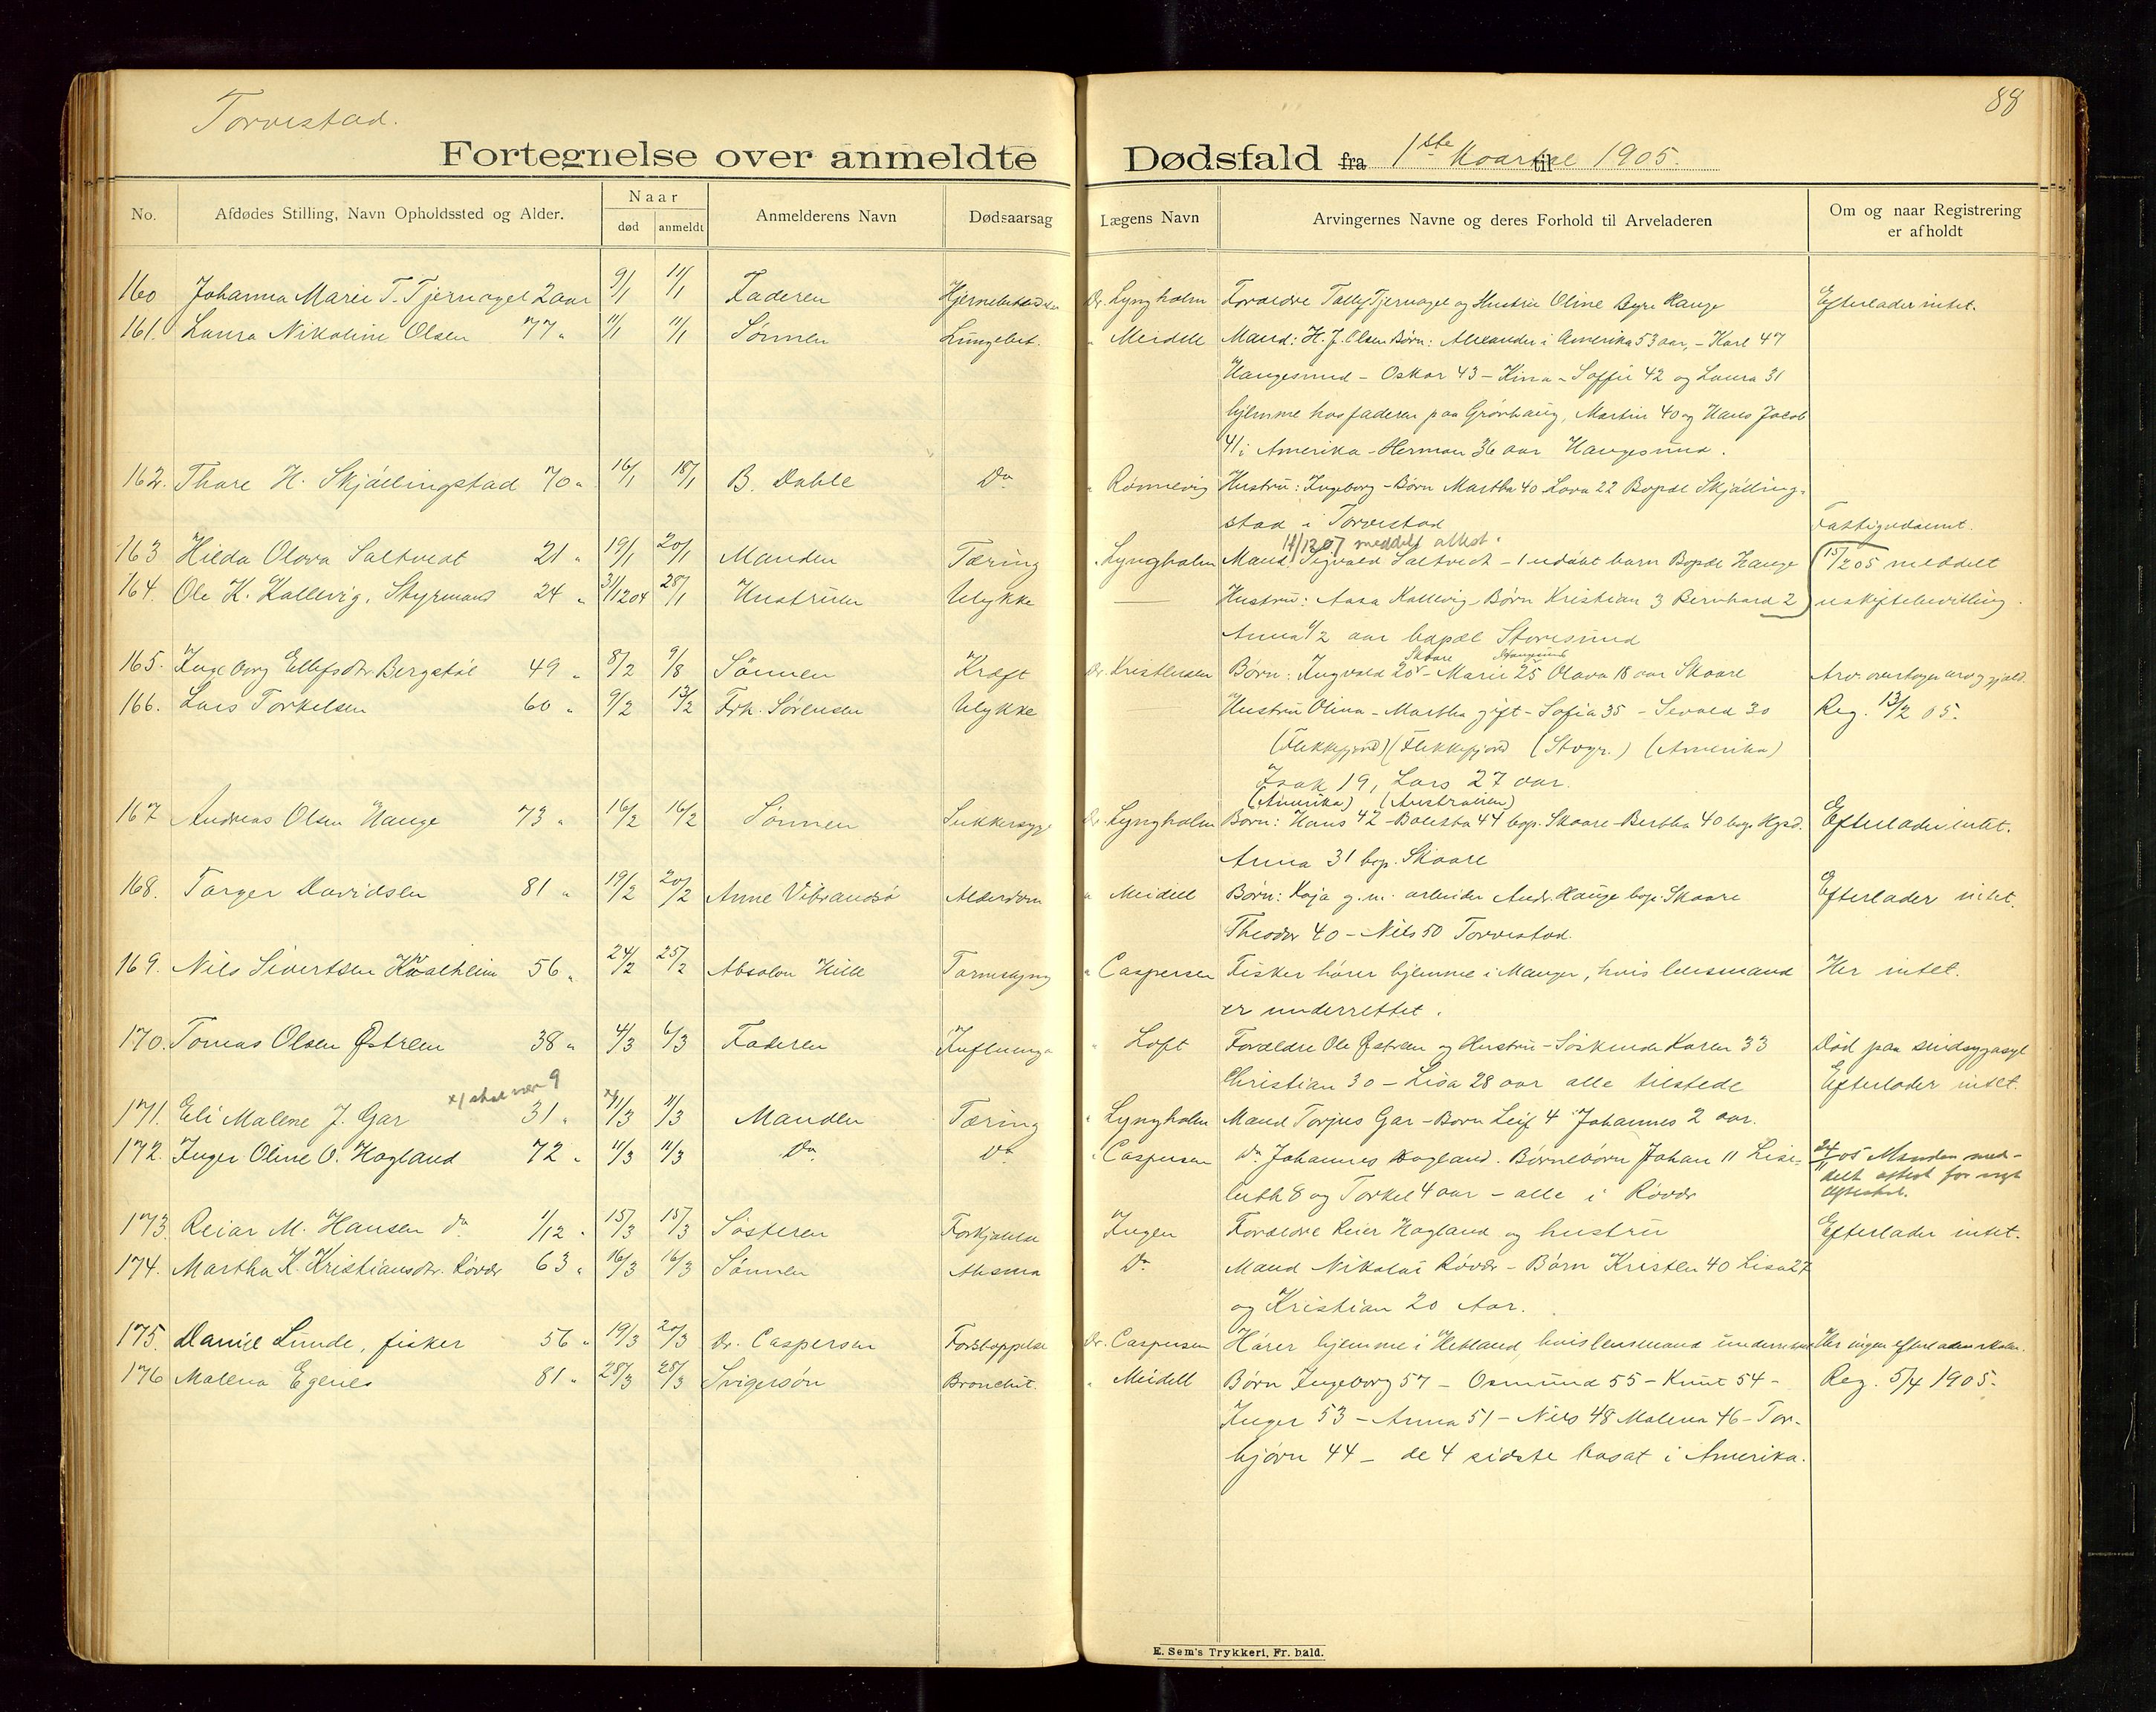 Torvestad.
88
Fortegnelse over anmeldte Dødsfald fra 1ste Kvartal til 1905.
No. Afdødes Stilling, Navn Opholdssted og Alder. Naar død anmeldt Anmelderens Navn Dødsaarsag Lægens Navn Arvingernes Navne og deres Forhold til Arveladeren Om og naar Registrering er afholdt
160 Johanna Marie T. Tjernagel 2 aar 9/1 11/1 Faderen Dr. Lyngholm Forældre Tjernagel og Hustru Oline Byre Hauge Efterlader intet.
161. Laura Nikoline Olsen 77 " 11/1 11/1 Sønnen Lungebet. " Meidell Mand: H. J. Olsen Børn: Alexander i Amerika 53 aar, - Karl 47
Haugesund - Oskar 43 - Kina - Soffie 42 og Laura 31
hjemme hos faderen paa Grønhaug, Martin 40 og Hans Jacob
41 i Amerika - Herman 36 aar Haugesund.
162. Thore H. Skjællingstad 70 " 16/1 18/1 B. Dahle Do " Rønnevig Hustru: Ingeborg - Børn Martha 40 Lova 22 Bopæl Skjælling-
stad i Torvestad Fastigudamt.
11/12 07 meddelt attest.
163 Hilda Olava Saltvedt 21 " 19/1 20/1 Manden Tæring " Lyngholm Mand: Sigvald Saltvedt - 1 udøbt barn Bopæl Hauge 15/2 05 meddelt
164. Ole K. Kallevig, Styrmand 24 " 31/12 04 28/1 Hustruen Ulykke Hustru: Aasa Kallevig - Børn Kristian 3 Bernhard 2 uskiftebevilling.
Anna 1/2 aar bopæl Storesund
Skaare Haugesund
165. Ingeborg Ellefsdtr Bergstøl 49 " 8/2 9/8 Sønnen Kræft Dr. Kristensen Børn: Ingvald 20 - Marie 25 Olava 18 aar Skaare Arv. overtager arv og gjæld.
166. Lars Torkelsen 60 " 9/2 13/2 Frk. Sørensen Ulykke Hustru Olina - Martha gift - Sofia 35 - Sevald 30 Reg. 13/2 05.
(Flekkefjord) (Flekkefjord) (Stvgr.) (Amerika)
Isak 19, Lars 27 aar.
(Amerika) (Australien)
167 Andreas Olsen Hauge 73 " 16/2 16/2 Sønnen Sukkersyge Dr. Lyngholm Børn: Hans 42 - Boletha 44 bop. Skaare - Bertha 40 bop. Hgsd. Efterlader intet.
Anna 31 bop. Skaare
168. Torger Davidsen 81 " 19/2 20/2 Anne Vibrandsø Alderdom " Meidell Børn: Kaja g. m. arbeider Andr. Hauge bop. Skaare Efterlader intet.
Theodor 40 - Nils 50 Torvestad.
169. Nils Sivertsen Kvalheim 56 " 24/2 25/2 Absalon Hille " Caspersen Fisker hører hjemme i Manger, hvis lensmand Her intet.
er underrettet.
170. Tomas Olsen Østrem 38 " 4/3 6/3 Faderen Influenza " Loft Forældre Ole Østrem og Hustru - Søskende Karen 33 Død paa sindsygeasyl
Christian 30 - Lisa 28 aar alle tilstede Efterlader intet.
x/ skal være 9
171. Eli Malene J. Gar 31 " x11/3 11/3 Manden Tæring " Lyngholm Mand Torjus Gar - Børn Leif 4 Johannes 2 aar.
172. Inger Oline O. Hagland 72 " 11/3 11/3 Do Do " Caspersen Do Johannes Hagland. Børnebørn Johan 11 Lise- 24/11 05 Manden med-
beth 8 og Torkel 4 aar - alle i Røvær delt attest for nyt
ægteskab.
173. Reiar M. Hansen do 1/12 " 15/3 15/3 Søsteren Forkjølelse Ingen Forældre Reier Hagland og hustru Efterlader intet.
174. Martha K. Kristiansdtr. Røvær 63 " 16/3 16/3 Sønnen Ahsma Do Mand Nikolai Røvær - Børn Kristen 40 Lisa 27
og Kristian 20 Aar.
175. Daniel Lunde, fisker 56 " 19/3 20/3 Dr. Caspersen Forstoppelse Dr. Caspersen Hører hjemme i Hetland, hvis lensmand underrettet Her ingen efterladenskaber.
176 Malena Egenes 81 " 28/3 28/3 Svigersøn Bronchit. " Meidell Børn Ingeborg 57 - Osmund 55 - Knut 54 - Reg. 5/4 1905.
Inger 53 - Anna 51 - Nils 48 Malena 46 - Tor-
bjørn 44 - de 4 sidste bosat i Amerika.
E. Sem's Trykkeri, Fr. hald.